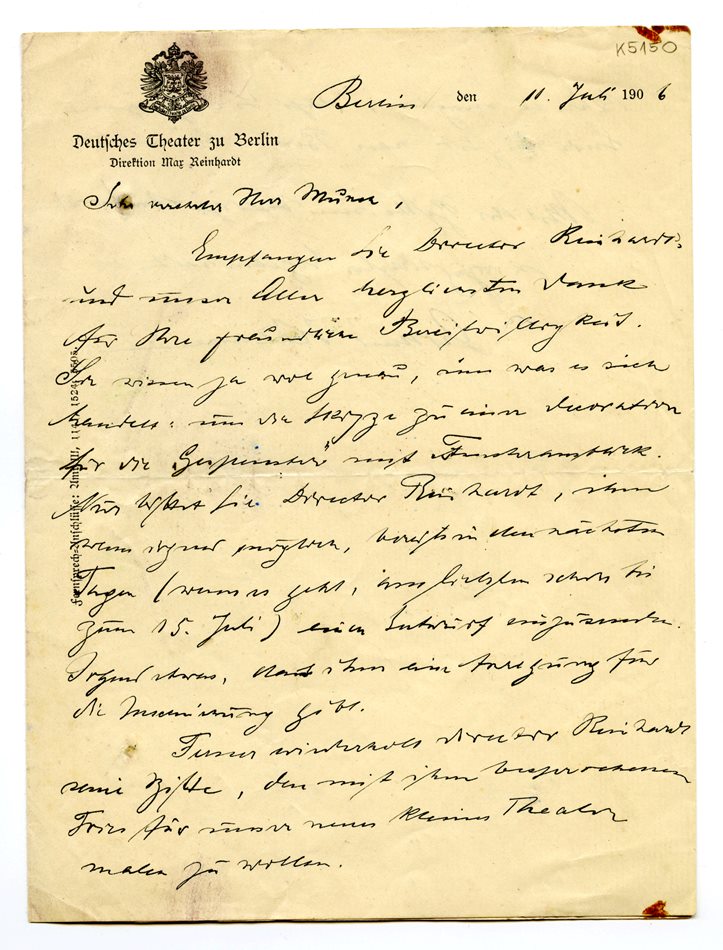 K5150
Berlin den 11. Juli 1906
Deutsches Theater zu Berlin
Direktion Max Reinhardt
Sehr verehrter Herr Munch,
Empfangen Sie Director Reinhardts
und unser Aller herzlichsten Dank
für Ihre freundliche Bereitwilligkeit.
Sie wissen ja wol genau, um was es sich
handelt: um die Skizze zu einer Decoration
für die „Gespenster" mit Fensterausblick.
Nun bittet Sie Director Reinhardt, ihm
wenn irgend möglich, bereits in den nächsten
Tagen (wenn es geht, am liebsten schon bis
zum 15. Juli) einen Entwurf einzusenden.
Irgend etwas, das ihm eine Anregung für
die Inscenirung gibt.
Ferner wiederholt Director Reinhardt
seine Bitte, den mit ihm besprochenen
Fries für unser neues kleines Theater
malen zu wollen.
Fernsprech-Anschlüsse: Amt III, 1524,